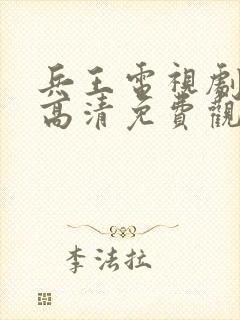 兵王電視劇
高清免費觀
李法拉